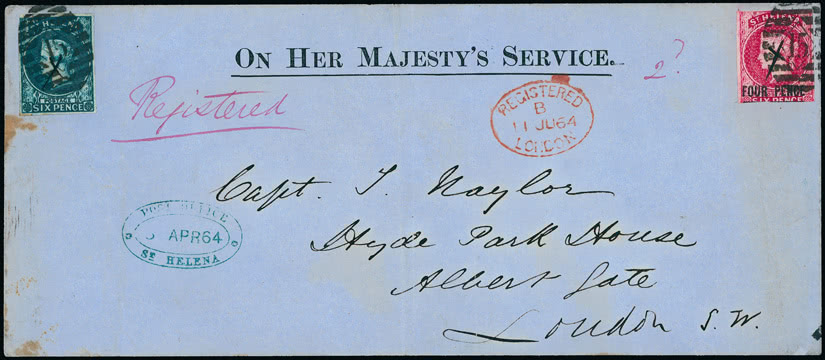 ST HELENA
POSTAGE
SIX PENCE
ON HER MAJESTY'S SERVICE.
2?
ST HELENA
FOUR PENCE
SIX PENCE
Registered
REGISTERED
B
11 JU64
LONDON
Capt. T. Naylor
Hyde Park House
Albert Gate
London S.W.
POST OFFICE
APR64
ST HELENA